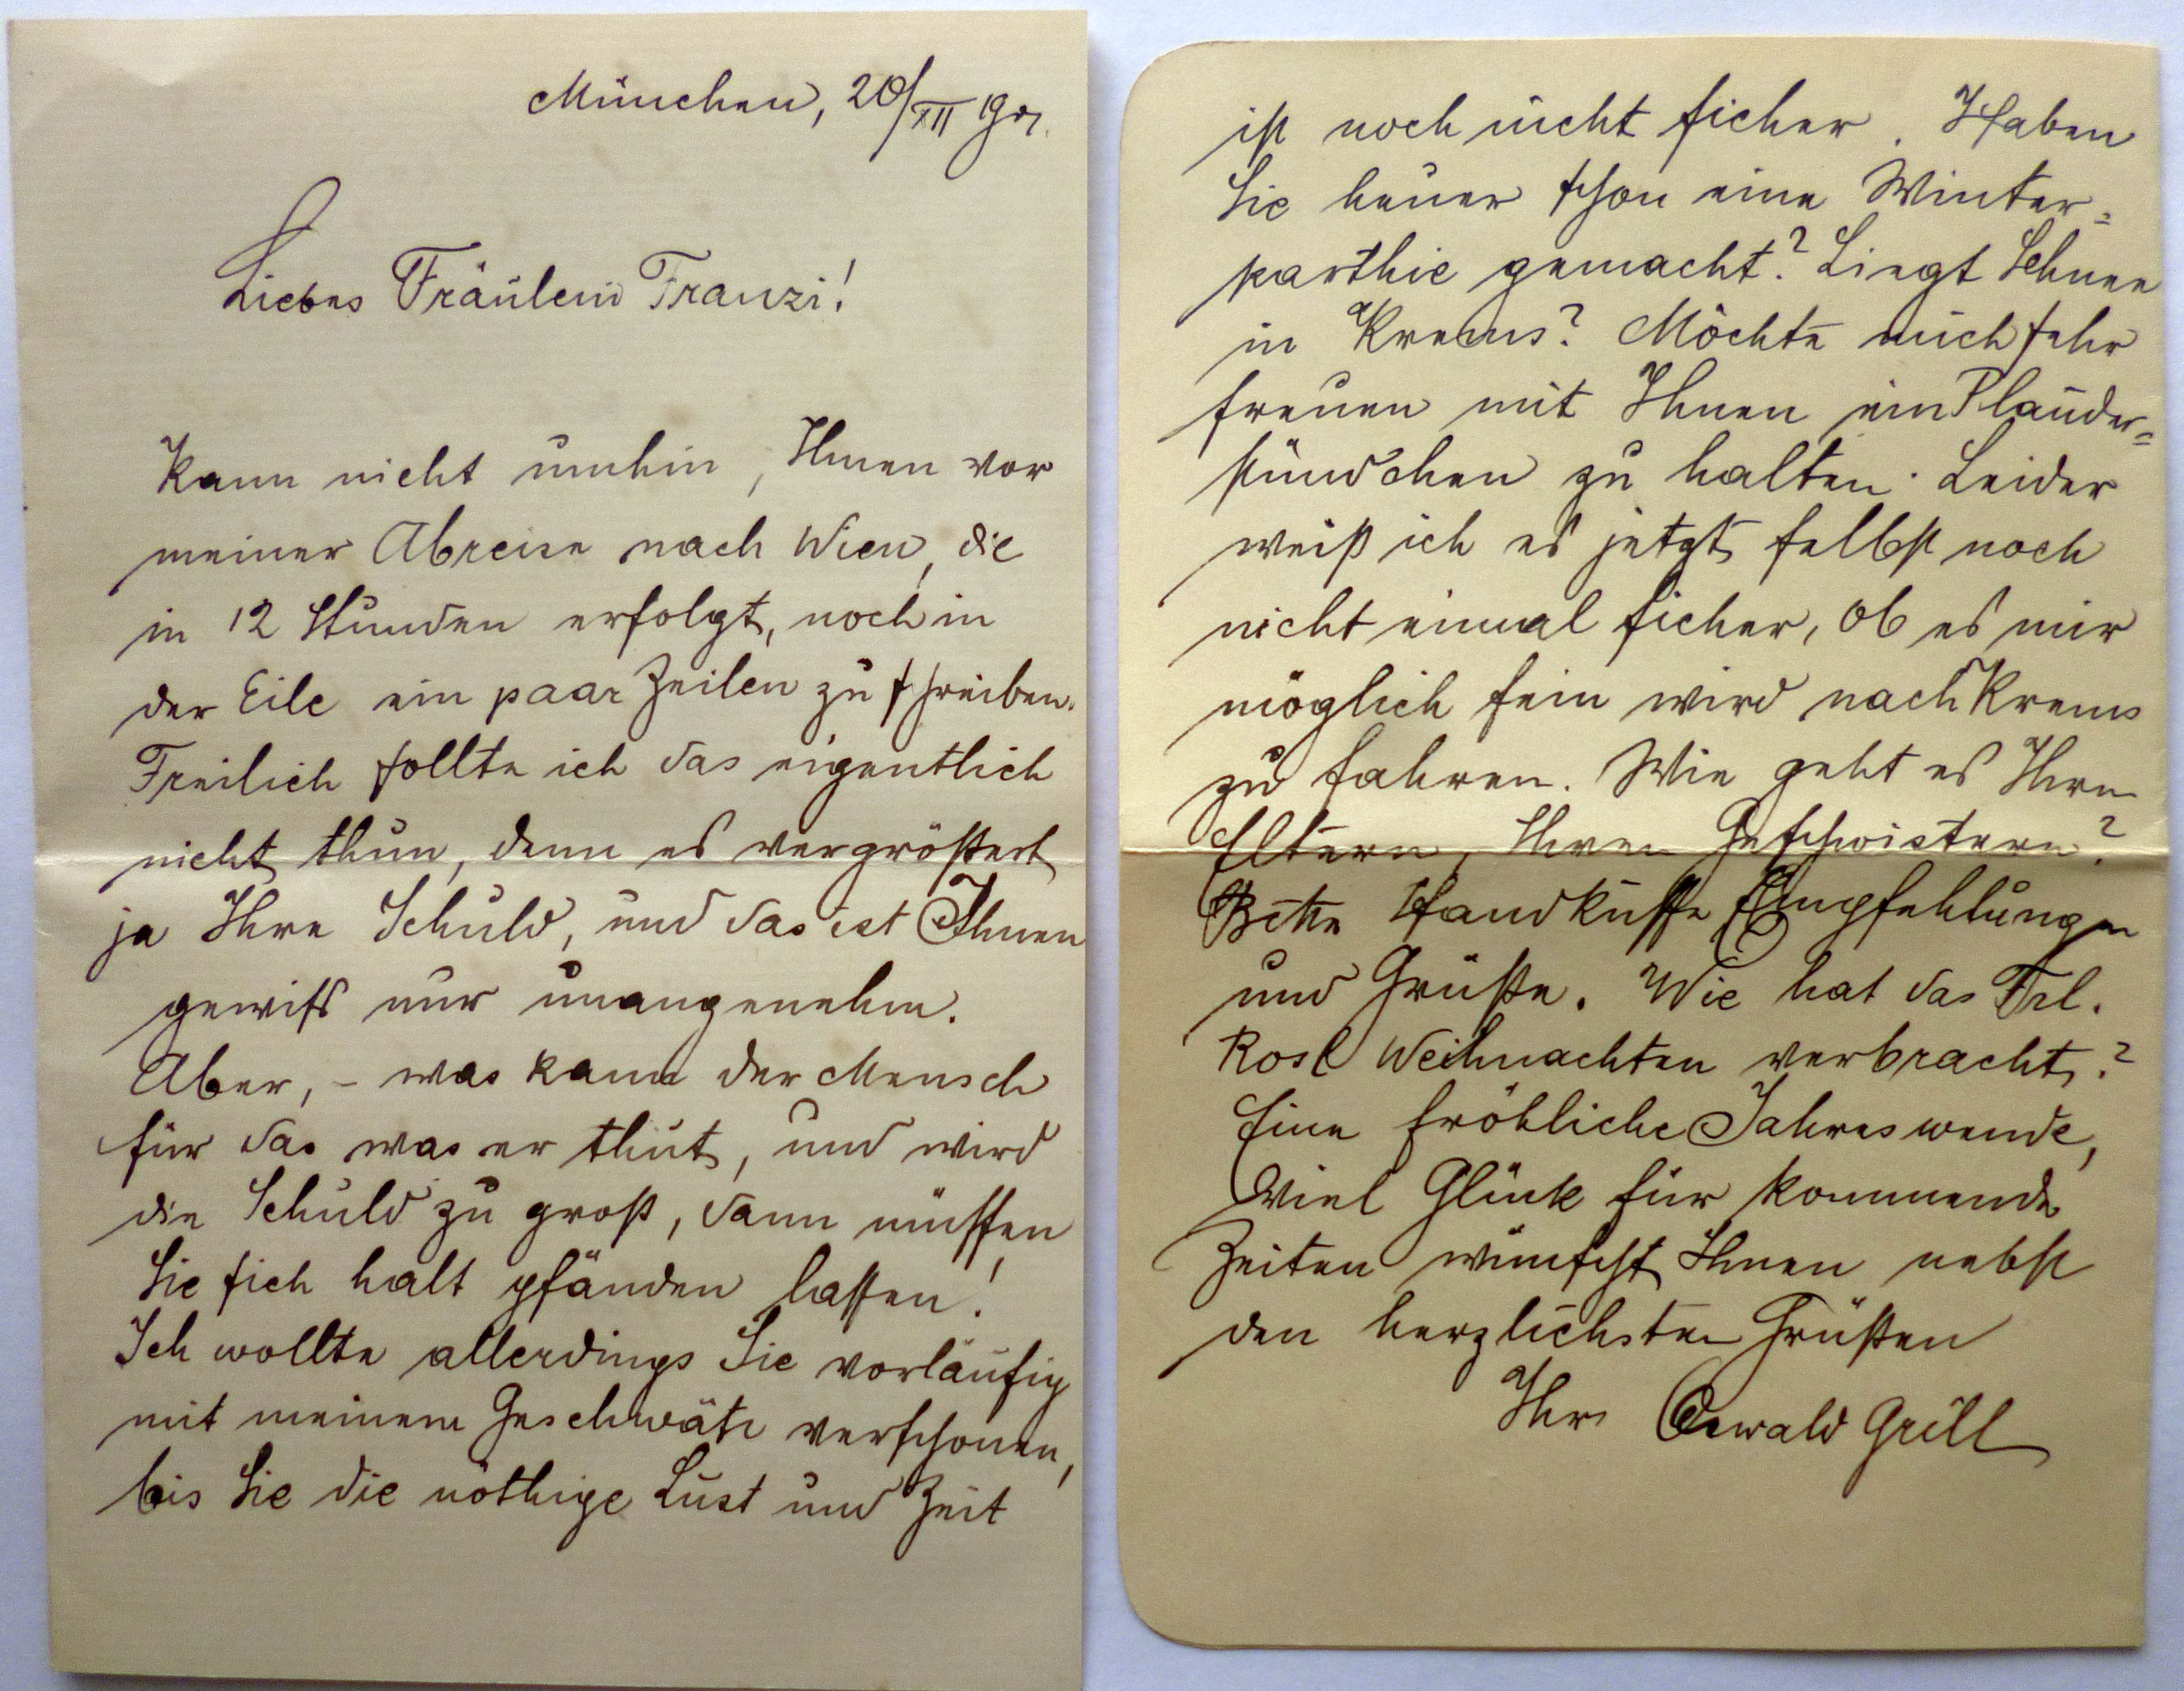 München, 20/XII 901.
Liebes Fräulein Franzi!
Kann nicht umhin, Ihnen vor
meiner Abreise nach Wien, die
in 12 Stunden erfolgt, noch in
der Eile ein paar Zeilen zu schreiben.
Freilich sollte ich das eigentlich
nicht thun, denn es vergrößert
ja Ihre Schuld, und das ist Ihnen
gewiss nur unangenehm.
Aber, – was kann der Mensch
für das was er thut, und wird
die Schuld zu groß, dann müssen
Sie sich halt pfänden lassen!
Ich wollte allerdings Sie vorläufig
mit meinem Geschwätz verschonen,
bis Sie die nöthige Lust und Zeit
ist noch nicht sicher. Haben
Sie heuer schon eine Winter=
parthie gemacht? Liegt Schnee
in Krems? Möchte mich sehr
freuen mit Ihnen ein Plauder=
stündchen zu halten. Leider
weiß ich es jetzt selbst noch
nicht einmal sicher, ob es mir
möglich sein wird nach Krems
zu fahren. Wie geht es Ihren
Eltern, Ihren Geschwistern?
Bitte Handküsse Empfehlungen
und Grüße. Wie hat das Frl.
Rosl Weihnachten verbracht?
Eine fröhliche Jahreswende,
viel Glück für kommende
Zeiten wünscht Ihnen nebst
den herzlichsten Grüßen
Ihr Oswald Grill